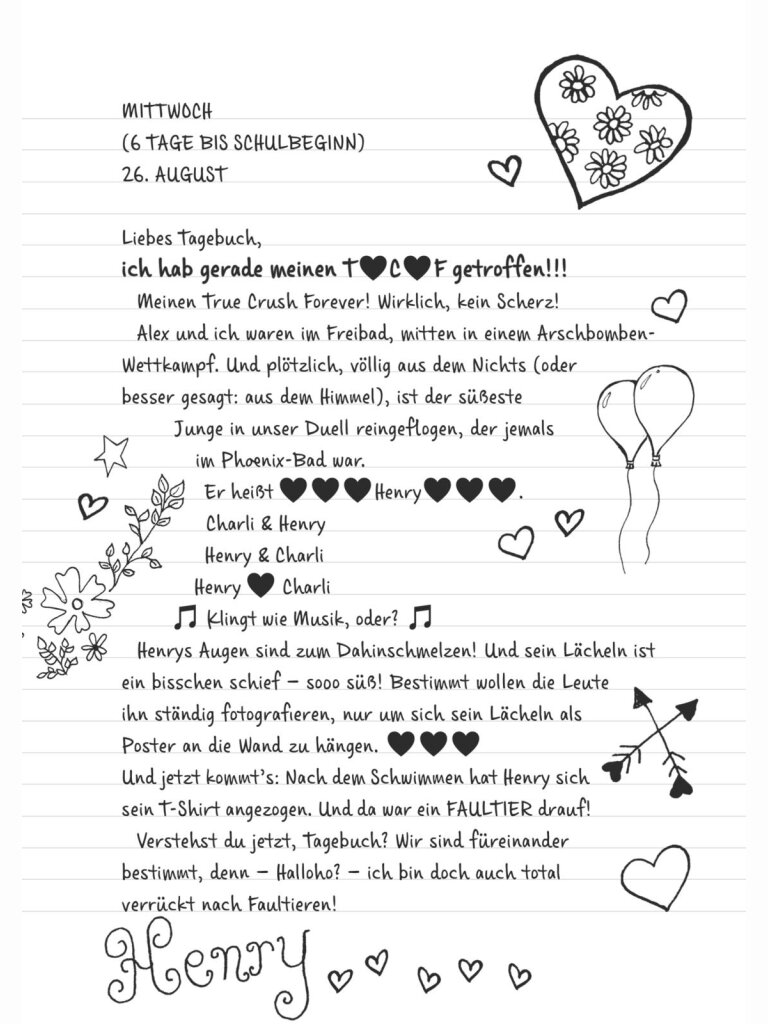 MITTWOCH
(6 TAGE BIS SCHULBEGINN)
26. AUGUST
Liebes Tagebuch,
ich hab gerade meinen T♥C♥F getroffen!!!
Meinen True Crush Forever! Wirklich, kein Scherz!
Alex und ich waren im Freibad, mitten in einem Arschbomben-
Wettkampf. Und plötzlich, völlig aus dem Nichts (oder
besser gesagt: aus dem Himmel), ist der süßeste
Junge in unser Duell reingeflogen, der jemals
im Phoenix-Bad war.
Er heißt ♥♥♥Henry♥♥♥.
Charli & Henry
Henry & Charli
Henry ♥ Charli
♫ Klingt wie Musik, oder? ♫
Henrys Augen sind zum Dahinschmelzen! Und sein Lächeln ist
ein bisschen schief – sooo süß! Bestimmt wollen die Leute
ihn ständig fotografieren, nur um sich sein Lächeln als
Poster an die Wand zu hängen. ♥♥♥
Und jetzt kommt's: Nach dem Schwimmen hat Henry sich
sein T-Shirt angezogen. Und da war ein FAULTIER drauf!
Verstehst du jetzt, Tagebuch? Wir sind füreinander
bestimmt, denn – Halloho? – ich bin doch auch total
verrückt nach Faultieren!
Henry